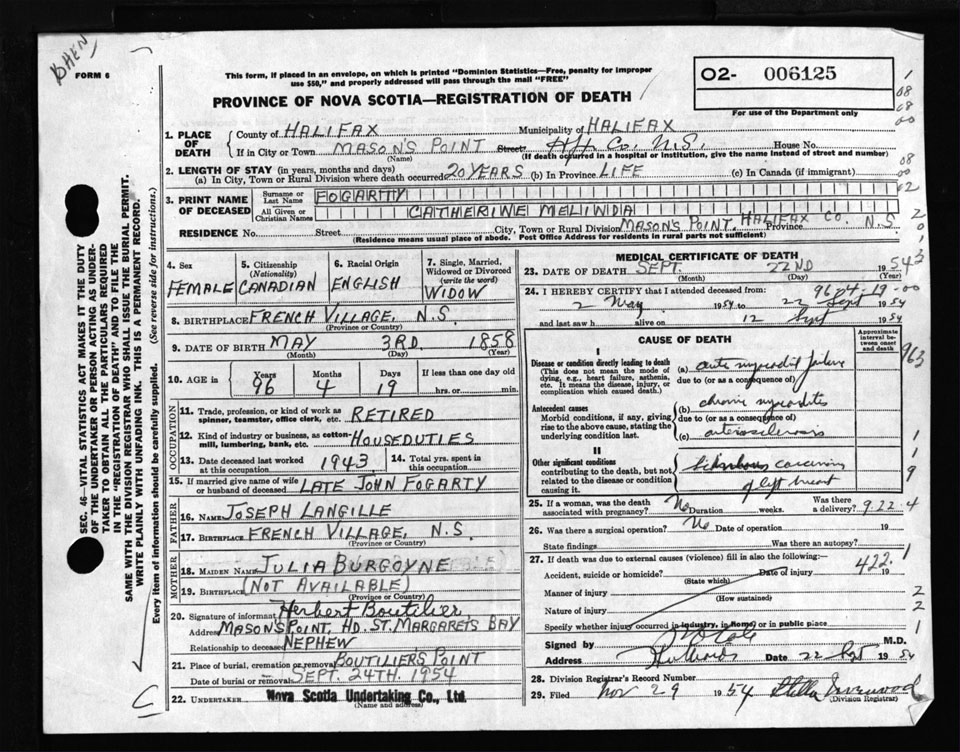 FORM 6
This form, if placed in an envelope, on which is printed "Dominion Statistics—Free, penalty for improper
use $50," and properly addressed will pass through the mail "FREE"
PROVINCE OF NOVA SCOTIA—REGISTRATION OF DEATH
O2- 006125
For use of the Department only
1. PLACE OF DEATH
County of HALIFAX Municipality of HALIFAX
If in City or Town MASON'S POINT Street HX Co. N.S. House No.
(Name) (If death occurred in a hospital or institution, give the name instead of street and number)
2. LENGTH OF STAY (in years, months and days)
(a) In City, Town or Rural Division where death occurred 20 YEARS (b) In Province LIFE (c) In Canada (if immigrant)
3. PRINT NAME OF DECEASED
Surname or Last Name FOGARTTY
All Given or Christian Names CATHERINE MELINDA
RESIDENCE No. Street City, Town or Rural Division MASON'S POINT, HALIFAX Co. Province N.S.
(Residence means usual place of abode. Post Office Address for residents in rural parts not sufficient)
4. Sex FEMALE
5. Citizenship (Nationality) CANADIAN
6. Racial Origin ENGLISH
7. Single, Married, Widowed or Divorced (write the word) WIDOW
8. BIRTHPLACE FRENCH VILLAGE, N.S.
(Province or Country)
9. DATE OF BIRTH MAY 3RD 1858
(Month) (Day) (Year)
10. AGE in Years 96 Months 4 Days 19 If less than one day old hrs. or min.
OCCUPATION
11. Trade, profession, or kind of work as spinner, teamster, office clerk, etc. RETIRED
12. Kind of industry or business, as cotton-mill, lumbering, bank, etc. HOUSEDUTIES
13. Date deceased last worked at this occupation 1943 14. Total yrs. spent in this occupation
15. If married give name of wife or husband of deceased LATE JOHN FOGARTY
FATHER
16. NAME JOSEPH LANGILLE
17. BIRTHPLACE FRENCH VILLAGE, N.S.
(Province or Country)
MOTHER
18. MAIDEN NAME JULIA BURGOYNE
19. BIRTHPLACE (NOT AVAILABLE)
(Province or Country)
20. Signature of informant Herbert Boutilier
Address MASON'S POINT, HD. ST. MARGARETS BAY
Relationship to deceased NEPHEW
21. Place of burial, cremation or removal BOUTILIERS POINT
Date of burial or removal SEPT. 24TH. 1954
22. UNDERTAKER Nova Scotia Undertaking Co., Ltd.
(Name and address)
MEDICAL CERTIFICATE OF DEATH
23. DATE OF DEATH SEPT. 22ND 1954
(Month) (Day) (Year)
24. I HEREBY CERTIFY that I attended deceased from:
2 May 1954 to 22 Sept 1954
and last saw h alive on 12 Sept 1954
CAUSE OF DEATH
Approximate interval between onset and death
I
Disease or condition directly leading to death
(This does not mean the mode of dying, e.g., heart failure, asthenia, etc. It means the disease, injury, or complication which caused death.)
(a) acute myocardial failure
due to (or as a consequence of)
Antecedent causes
Morbid conditions, if any, giving rise to the above cause, stating the underlying condition last.
(b) chronic myocarditis
due to (or as a consequence of)
(c) arteriosclerosis
II
Other significant conditions
contributing to the death, but not related to the disease or condition causing it.
Schirrhous carcinoma
of left breast
25. If a woman, was the death associated with pregnancy? No Duration weeks. Was there a delivery?
26. Was there a surgical operation? No Date of operation 19
State findings Was there an autopsy?
27. If death was due to external causes (violence) fill in also the following:
Accident, suicide or homicide? Date of injury 19
(State which)
Manner of injury
(How sustained)
Nature of injury
Specify whether injury occurred in industry, in home, or in public place
Signed by M.D.
Address Date 22 Sept 1954
28. Division Registrar's Record Number
29. Filed Nov 29 1954 Stella
(Division Registrar)
SEC. 46—VITAL STATISTICS ACT MAKES IT THE DUTY
OF THE UNDERTAKER OR PERSON ACTING AS UNDER-
TAKER TO OBTAIN ALL THE PARTICULARS REQUIRED
IN THE "REGISTRATION OF DEATH" AND TO FILE THE
SAME WITH THE DIVISION REGISTRAR WHO SHALL ISSUE THE BURIAL PERMIT.
WRITE PLAINLY WITH UNFADING INK. THIS IS A PERMANENT RECORD.
Every item of information should be carefully supplied. (See reverse side for instructions.)